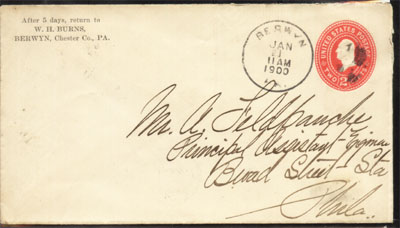 After 5 days, return to
W. H. BURNS,
BERWYN, Chester Co., PA.
BERWYN
JAN
11AM
1900
UNITED STATES POSTAGE
TWO 2 CENTS
Mr. A. Feldpauche
Principal Assistant Engineer
Broad Street Sta
Phila.